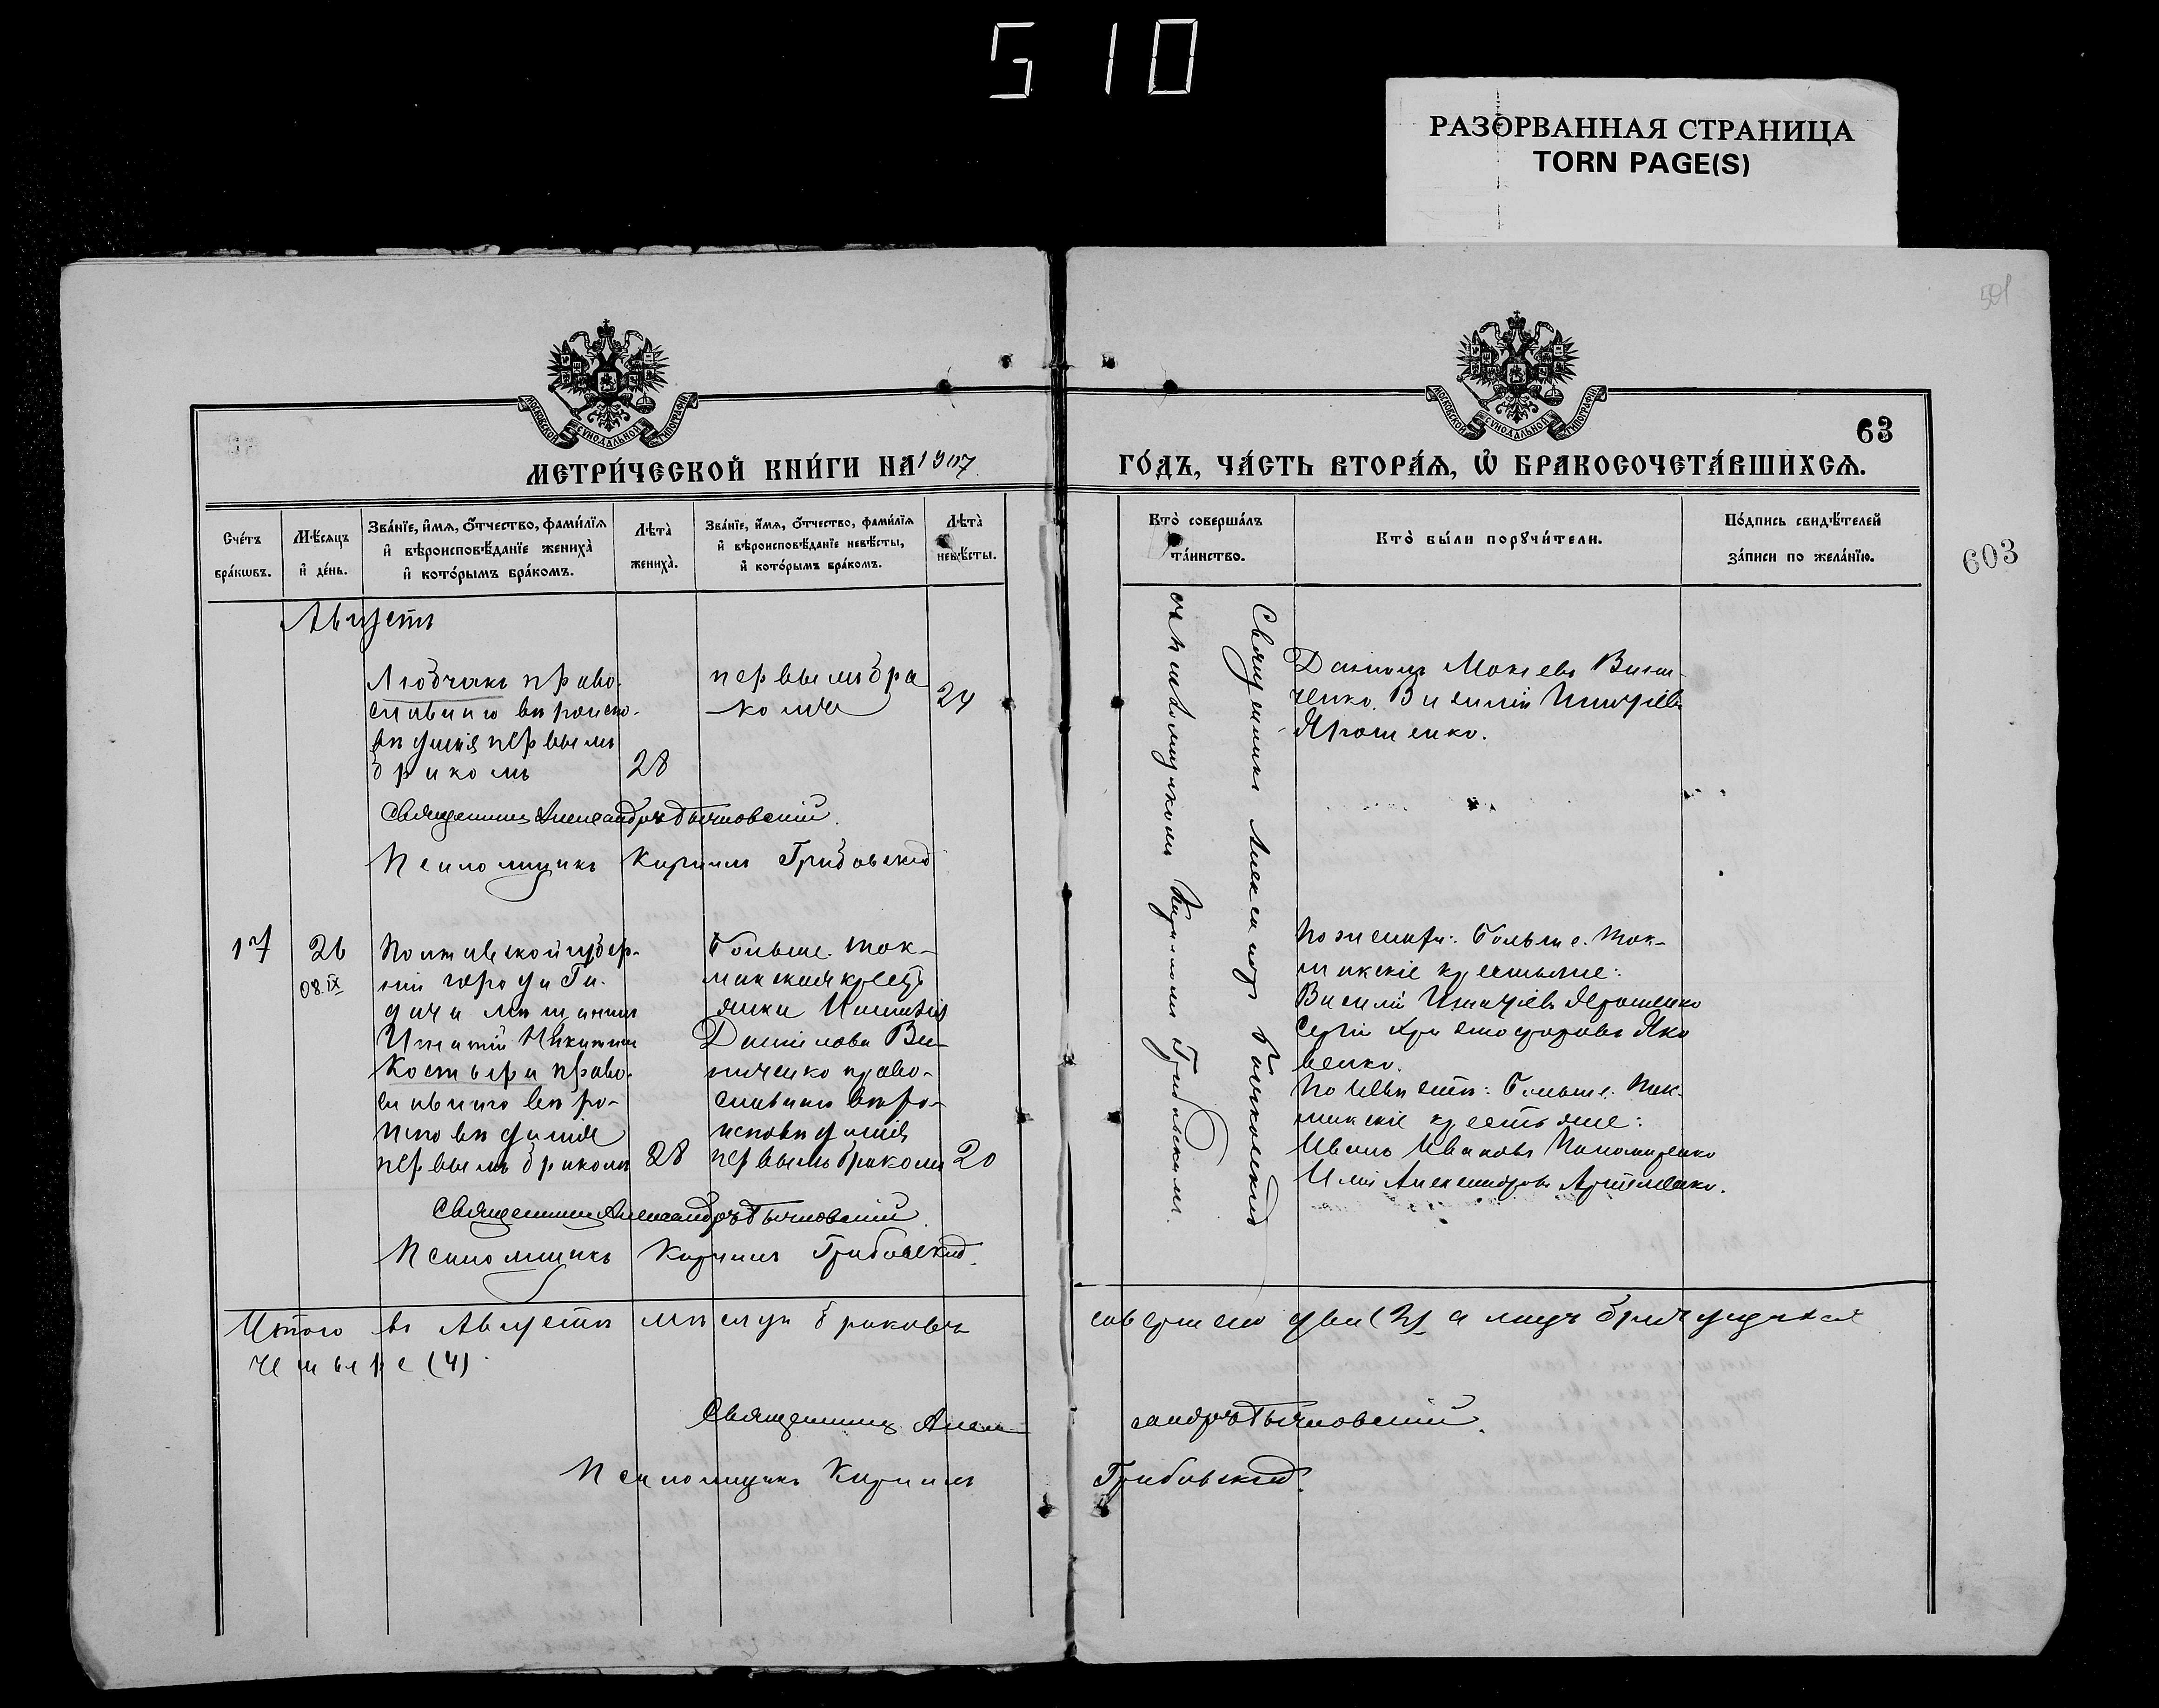 510
РАЗОРВАННАЯ СТРАНИЦА
TORN PAGE(S)
63
603
МЕТРИ́ЧЕСКОЙ КНИ́ГИ НА 1907
ГО́ДЪ, ЧА́СТЬ ВТОРА́Ѧ, Ѡ҆ БРАКОСОЧЕТА́ВШИХСѦ.
Сче́тъ бра́кѡвъ.
Мѣ́сѧцъ и҆ де́нь.
Зва́нїе, и҆́мѧ, ѻ҆́тчество, фами́лїѧ
и҆ вѣроисповѣ́данїе жениха̀
и҆ кото́рымъ бра́комъ.
Лѣ́та̀ жениха̀.
Зва́нїе, и҆́мѧ, ѻ҆́тчество, фами́лїѧ
и҆ вѣроисповѣ́данїе невѣ́сты,
и҆ кото́рымъ бра́комъ.
Лѣ́та̀ невѣ́сты.
Кто̀ соверша́лъ та́инство.
Кто̀ бы́ли порꙋчи́тели.
По́дпись свидѣ́телей
за́писи по жела́нїю.
Августъ
право-
славнаго вѣроиспо-
вѣданія первымъ
бракомъ
28
первымъ бра
комъ
24
Священникъ Александръ
Псаломщикъ Кириллъ Грибовскій
Священникъ Александръ
Псаломщикомъ Кирилломъ Грибовскимъ.
Ярошенко.
17
26
08.IX
Полтавской губер-
ніи города Га-
дяча мѣщанинъ
Игнатій Никитинъ
Костыря право-
славнаго вѣро-
исповѣданія
первымъ бракомъ
28
Больше-Ток-
макская крестъ
янка
Даніилова Ви-
ниченко право-
славнаго вѣро-
исповѣданія
первымъ бракомъ
20
По женихѣ: Больше-Ток-
макскіе крестьяне:
Василій Игнатіевъ Ярошенко
Сергій Христофоровъ Яко
венко.
По невѣстѣ: Больше-Ток-
макскіе крестьяне:
Иванъ Ивановъ Пономаренко
Илія Александровъ Артеменко.
Священникъ Александръ
Псаломщикъ Кириллъ Грибовскій.
Итого въ Августѣ мѣсяцѣ браковъ совершено два (2), а лицъ бракующихся
четыре (4).
Священникъ Александръ
Псаломщикъ Кириллъ Грибовскій.